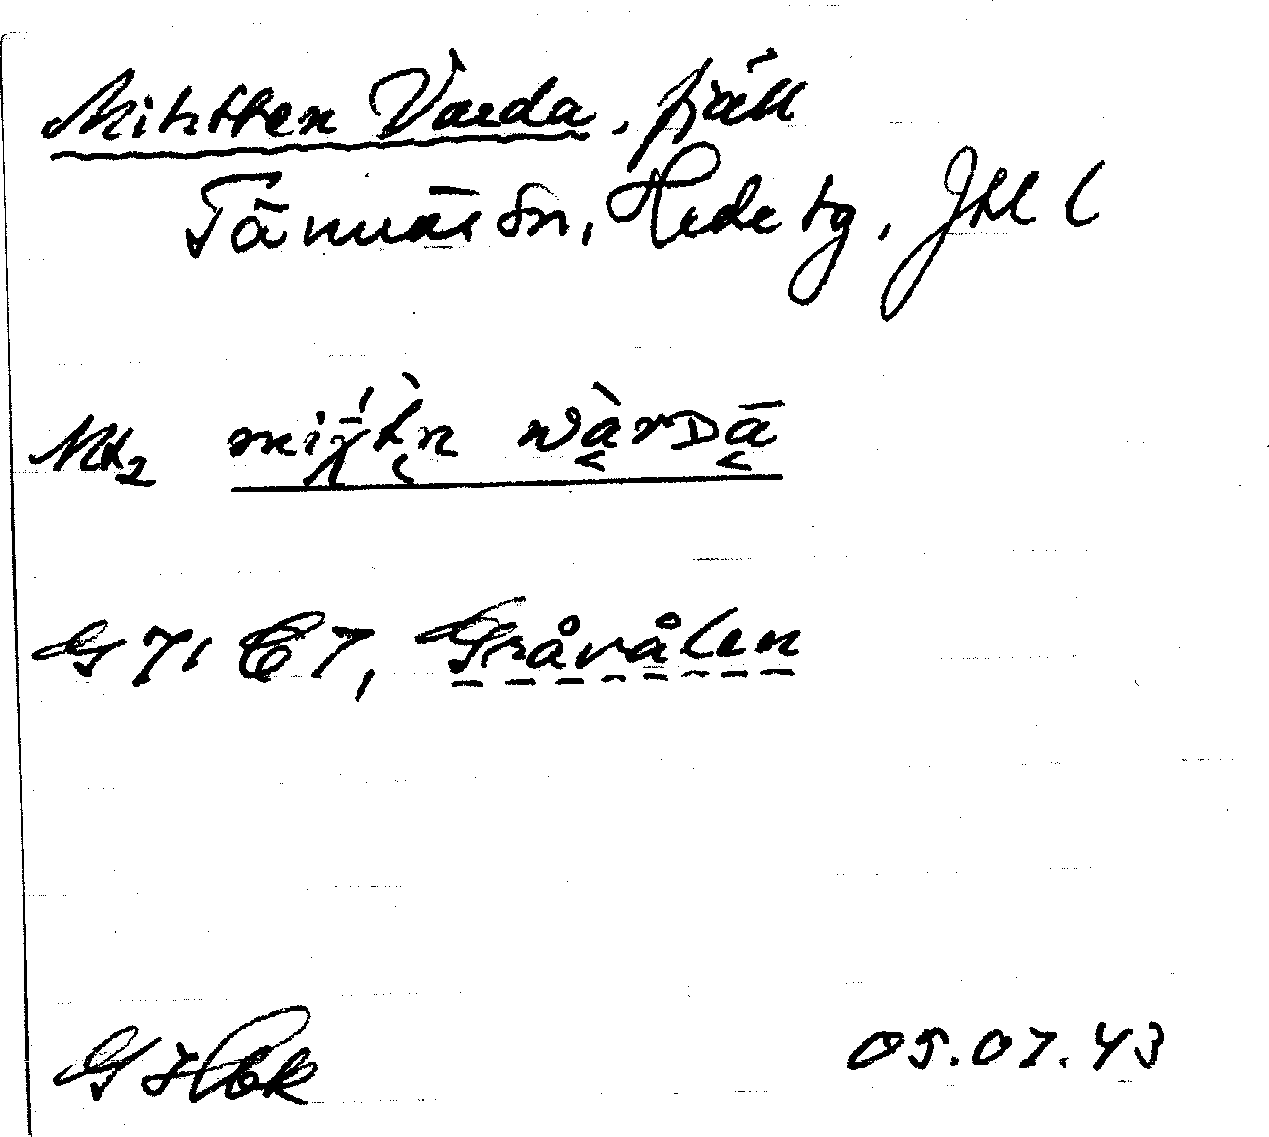 Mihtten Varda, fjäll
Tännäs sn, Hede tg, Jtl l
Mt2 miχ́tn wàrDā
G 71 C7, Gråvålen
05.07.43